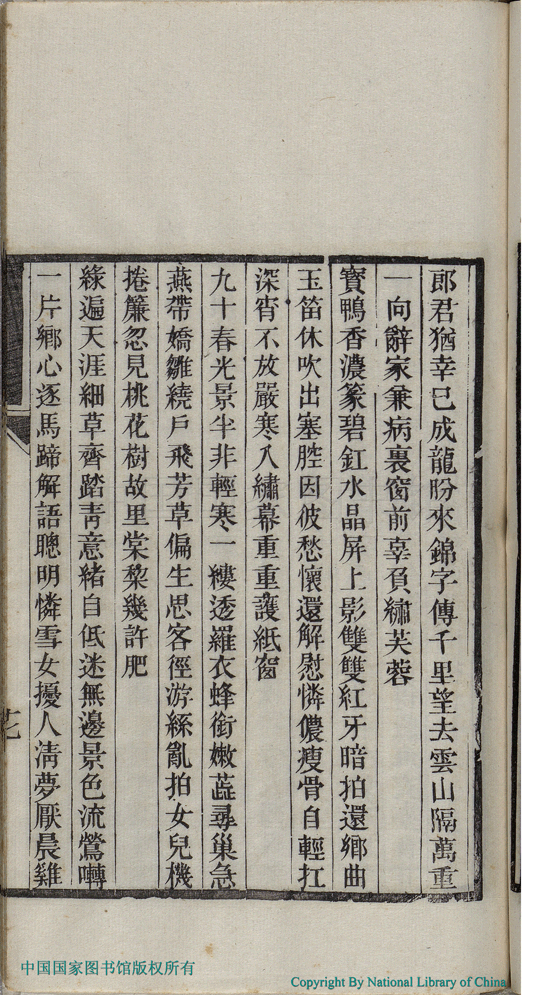 郎君猶幸已成龍盼來錦字傳千里望去雲山隔萬重
一向辭家兼病裏窗前辜負繡芙蓉
寳鴨香濃篆碧釭水晶屏上影雙雙紅牙暗拍還鄉曲
玉笛休吹出塞腔因彼愁懷還解慰憐儂瘦骨自輕扛
深宵不放嚴寒入繡幕重重護紙窗
九十春光景半非輕寒一縷透羅衣蜂銜嫩蕋尋巢急
燕帶嬌雛繞戶飛芳草偏生思客徑游絲亂拍女兒機
捲簾忽見桃花樹故里棠棃幾許肥
綠遍天涯細草齊踏靑意緒自低迷無邊景色流鶯囀
一片鄉心逐馬蹄解語聰明憐雪女擾人淸夢厭晨雞
中国国家图书馆版权所有
Copyright By National Library of China